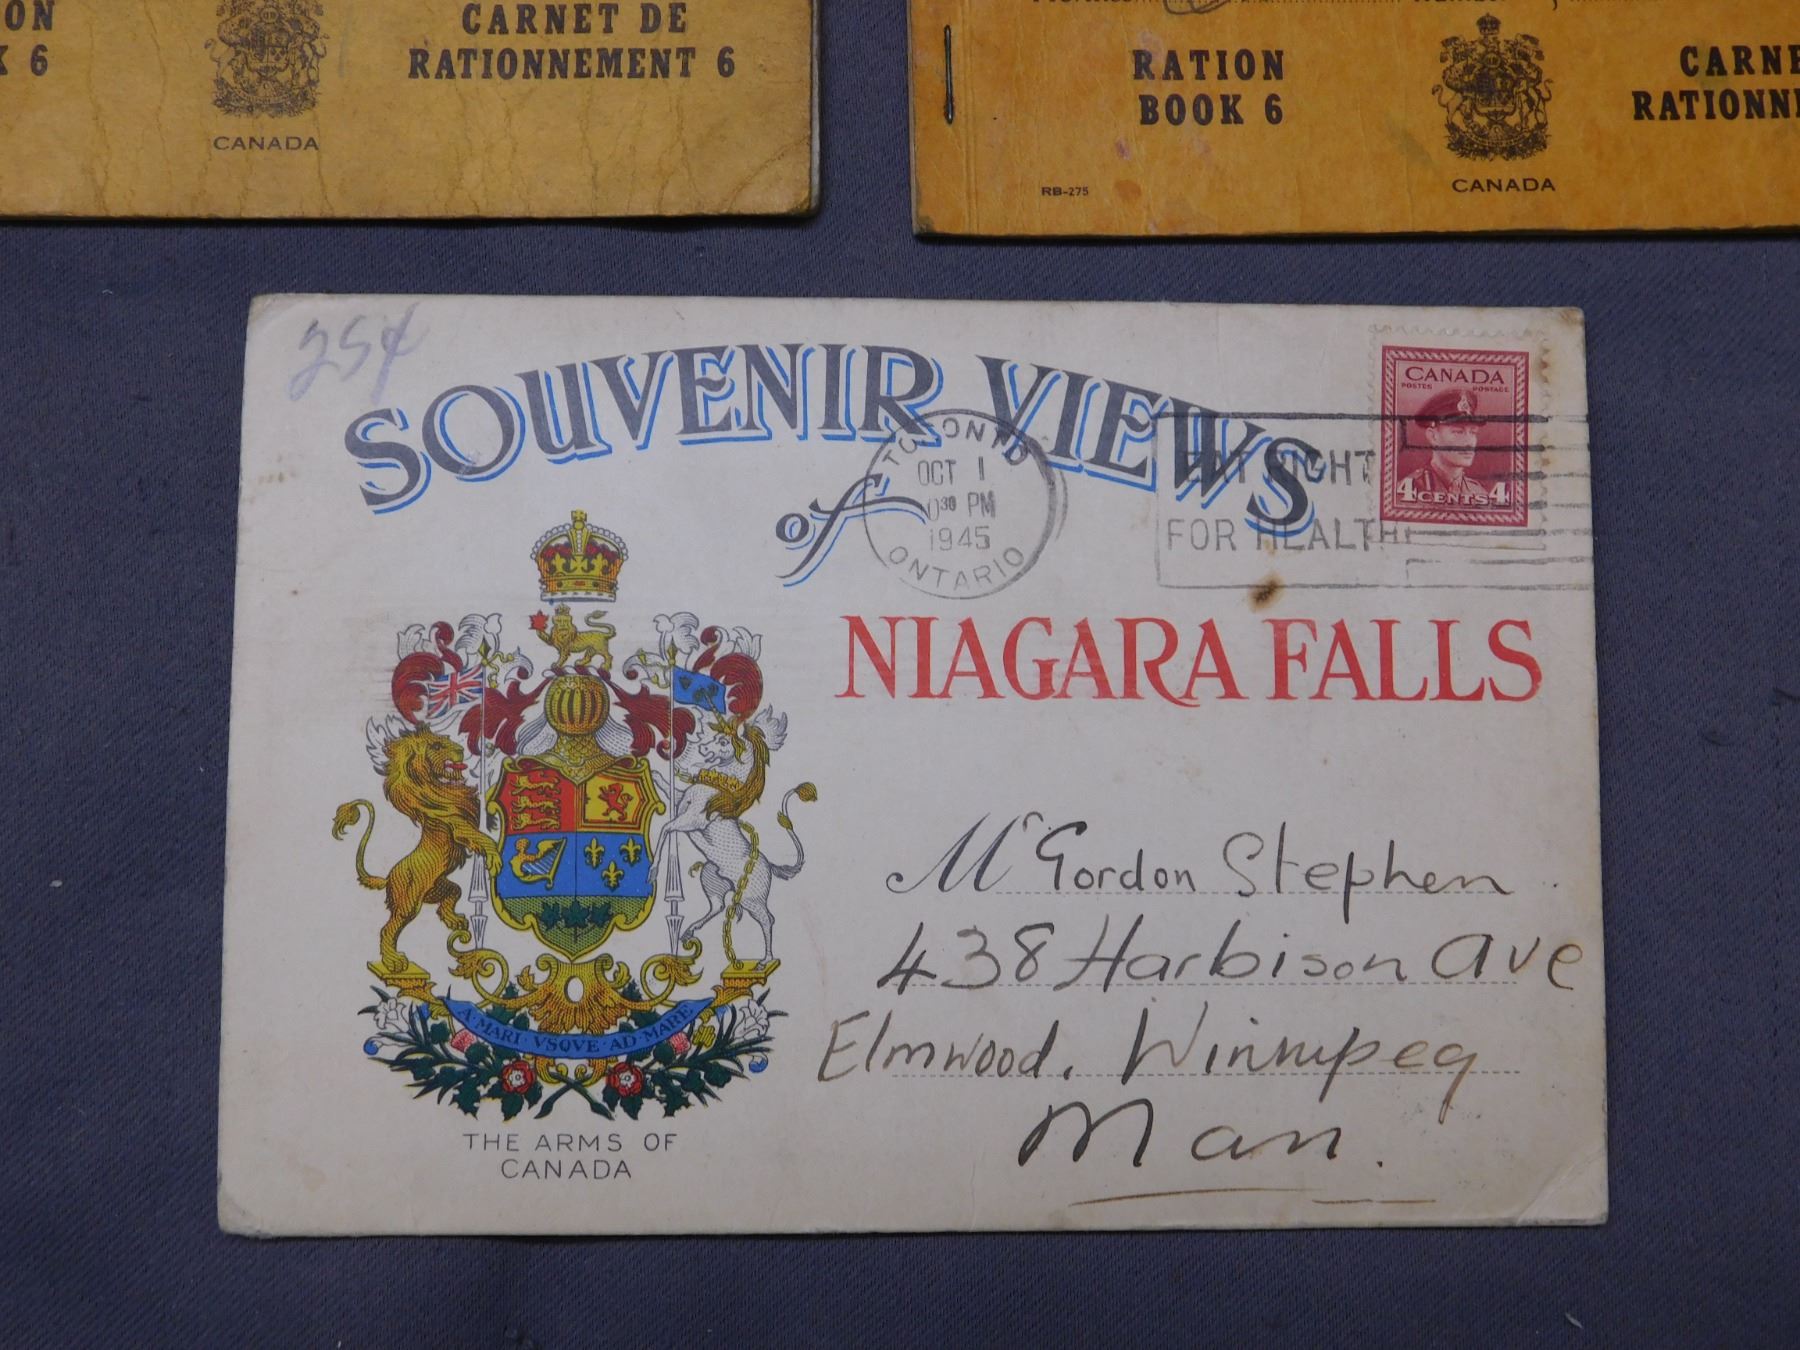 ON
CARNET DE
K 6
RATIONNEMENT 6
CANADA
RATION
BOOK 6
CARNE
RATIONN
RB-275
CANADA
25¢
SOUVENIR VIEWS
of
NIAGARA FALLS
TORONTO
OCT 1
030 PM
1945
ONTARIO
EAT RIGHT
FOR HEALTH!
CANADA
POSTES POSTAGE
4 CENTS 4
Mr Gordon Stephen
438 Harbison Ave
Elmwood. Winnipeg
Man.
A·MARI·VSQVE·AD·MARE
THE ARMS OF
CANADA